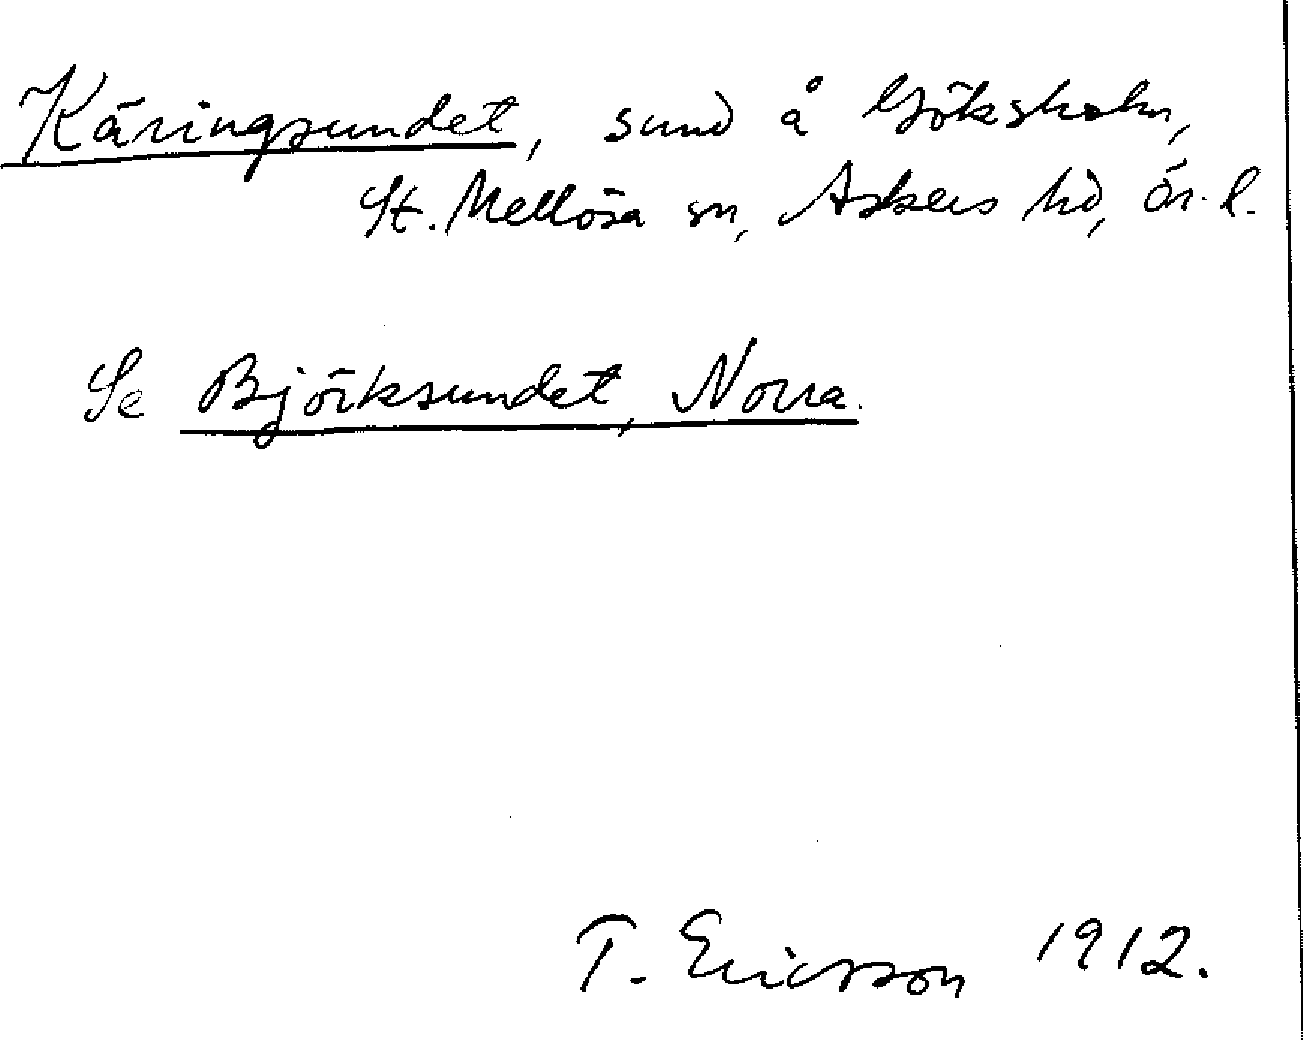 Käringsundet, sund å Göksholm,
St. Mellösa sn, Askers hd, Ör. l.
Se Björksundet, Norra.
T. Ericsson 1912.